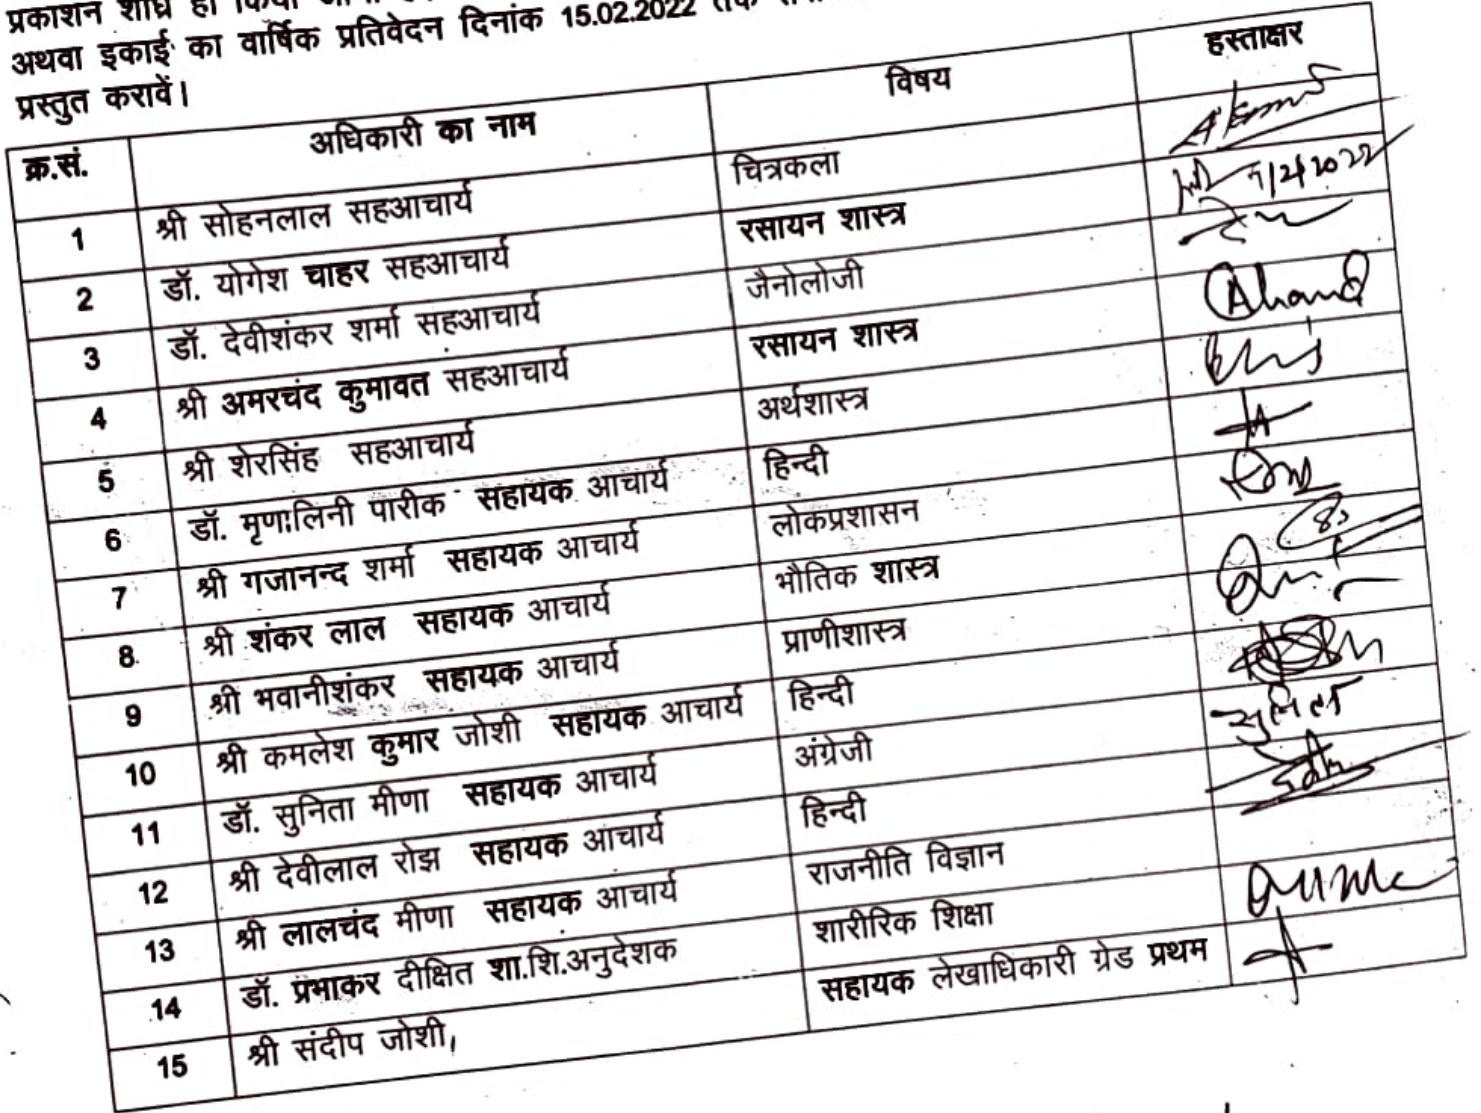 प्रकाशन शीघ्र ही किया
अथवा इकाई का वार्षिक प्रतिवेदन दिनांक 15.02.2022 तक
प्रस्तुत करावें।
क्र.सं. अधिकारी का नाम विषय हस्ताक्षर
1 श्री सोहनलाल सहआचार्य चित्रकला
2 डॉ. योगेश चाहर सहआचार्य रसायन शास्त्र 7/2/2022
3 डॉ. देवीशंकर शर्मा सहआचार्य जैनोलोजी
4 श्री अमरचंद कुमावत सहआचार्य रसायन शास्त्र
5 श्री शेरसिंह सहआचार्य अर्थशास्त्र
6 डॉ. मृणालिनी पारीक सहायक आचार्य हिन्दी
7 श्री गजानन्द शर्मा सहायक आचार्य लोकप्रशासन
8 श्री शंकर लाल सहायक आचार्य भौतिक शास्त्र
9 श्री भवानीशंकर सहायक आचार्य प्राणीशास्त्र
10 श्री कमलेश कुमार जोशी सहायक आचार्य हिन्दी
11 डॉ. सुनिता मीणा सहायक आचार्य अंग्रेजी सुनिता
12 श्री देवीलाल रोझ सहायक आचार्य हिन्दी
13 श्री लालचंद मीणा सहायक आचार्य राजनीति विज्ञान
14 डॉ. प्रभाकर दीक्षित शा.शि.अनुदेशक शारीरिक शिक्षा
15 श्री संदीप जोशी, सहायक लेखाधिकारी ग्रेड प्रथम